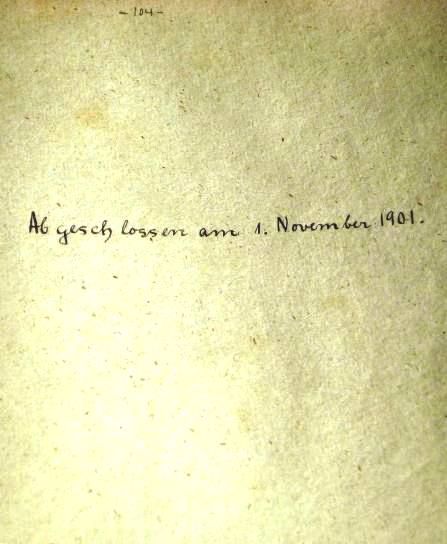 - 104 -
Abgeschlossen am 1. November 1901.